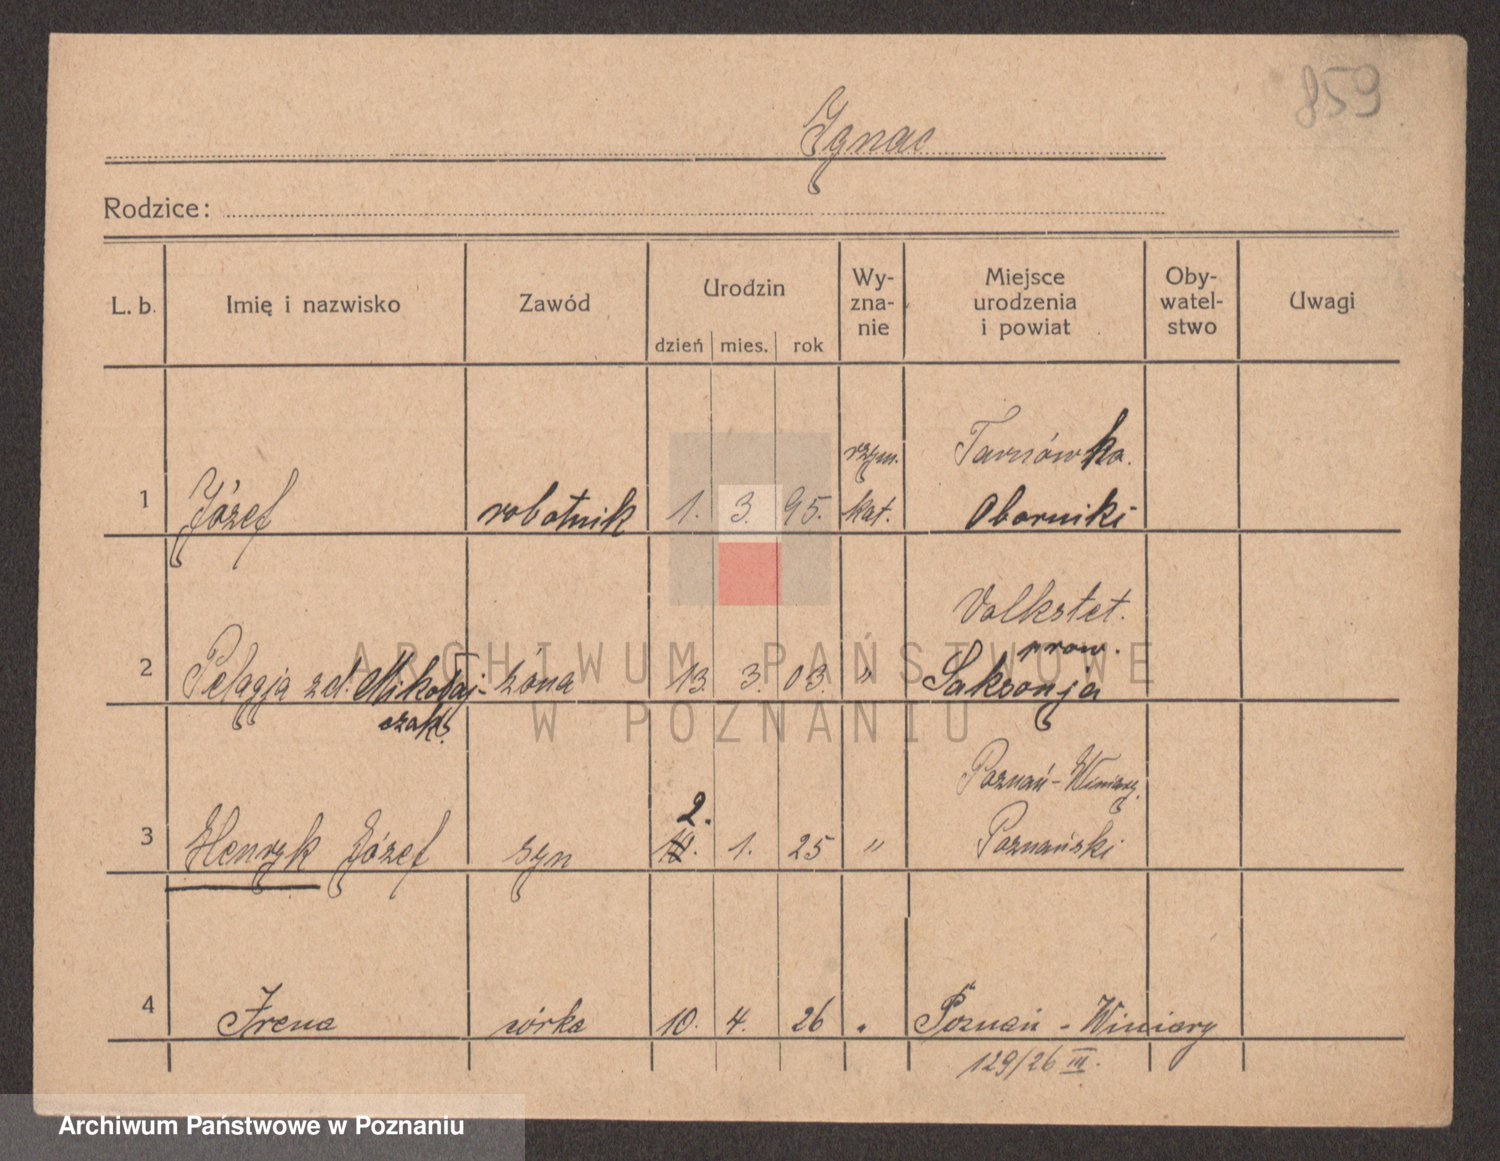 859
Ignac
Rodzice:
L. b. Imię i nazwisko Zawód Urodzin Wy-zna-nie Miejsce urodzenia i powiat Oby-watel-stwo Uwagi
dzień mies. rok
rzym. Tarnówka.
1 Józef robotnik 1. 3. 95. kat. Oborniki
Volkstet.
prow.
2 Pelagja zd. Mikołaj- żona 13. 3. 03. " Saksonja
czak.
Poznań-Winiary.
2.
3 Henryk Józef syn 1. 25 " Poznański
4 Irena córka 10. 4. 26 " Poznań - Winiary
129/26 III.
ARCHIWUM PAŃSTWOWE
W POZNANIU
Archiwum Państwowe w Poznaniu